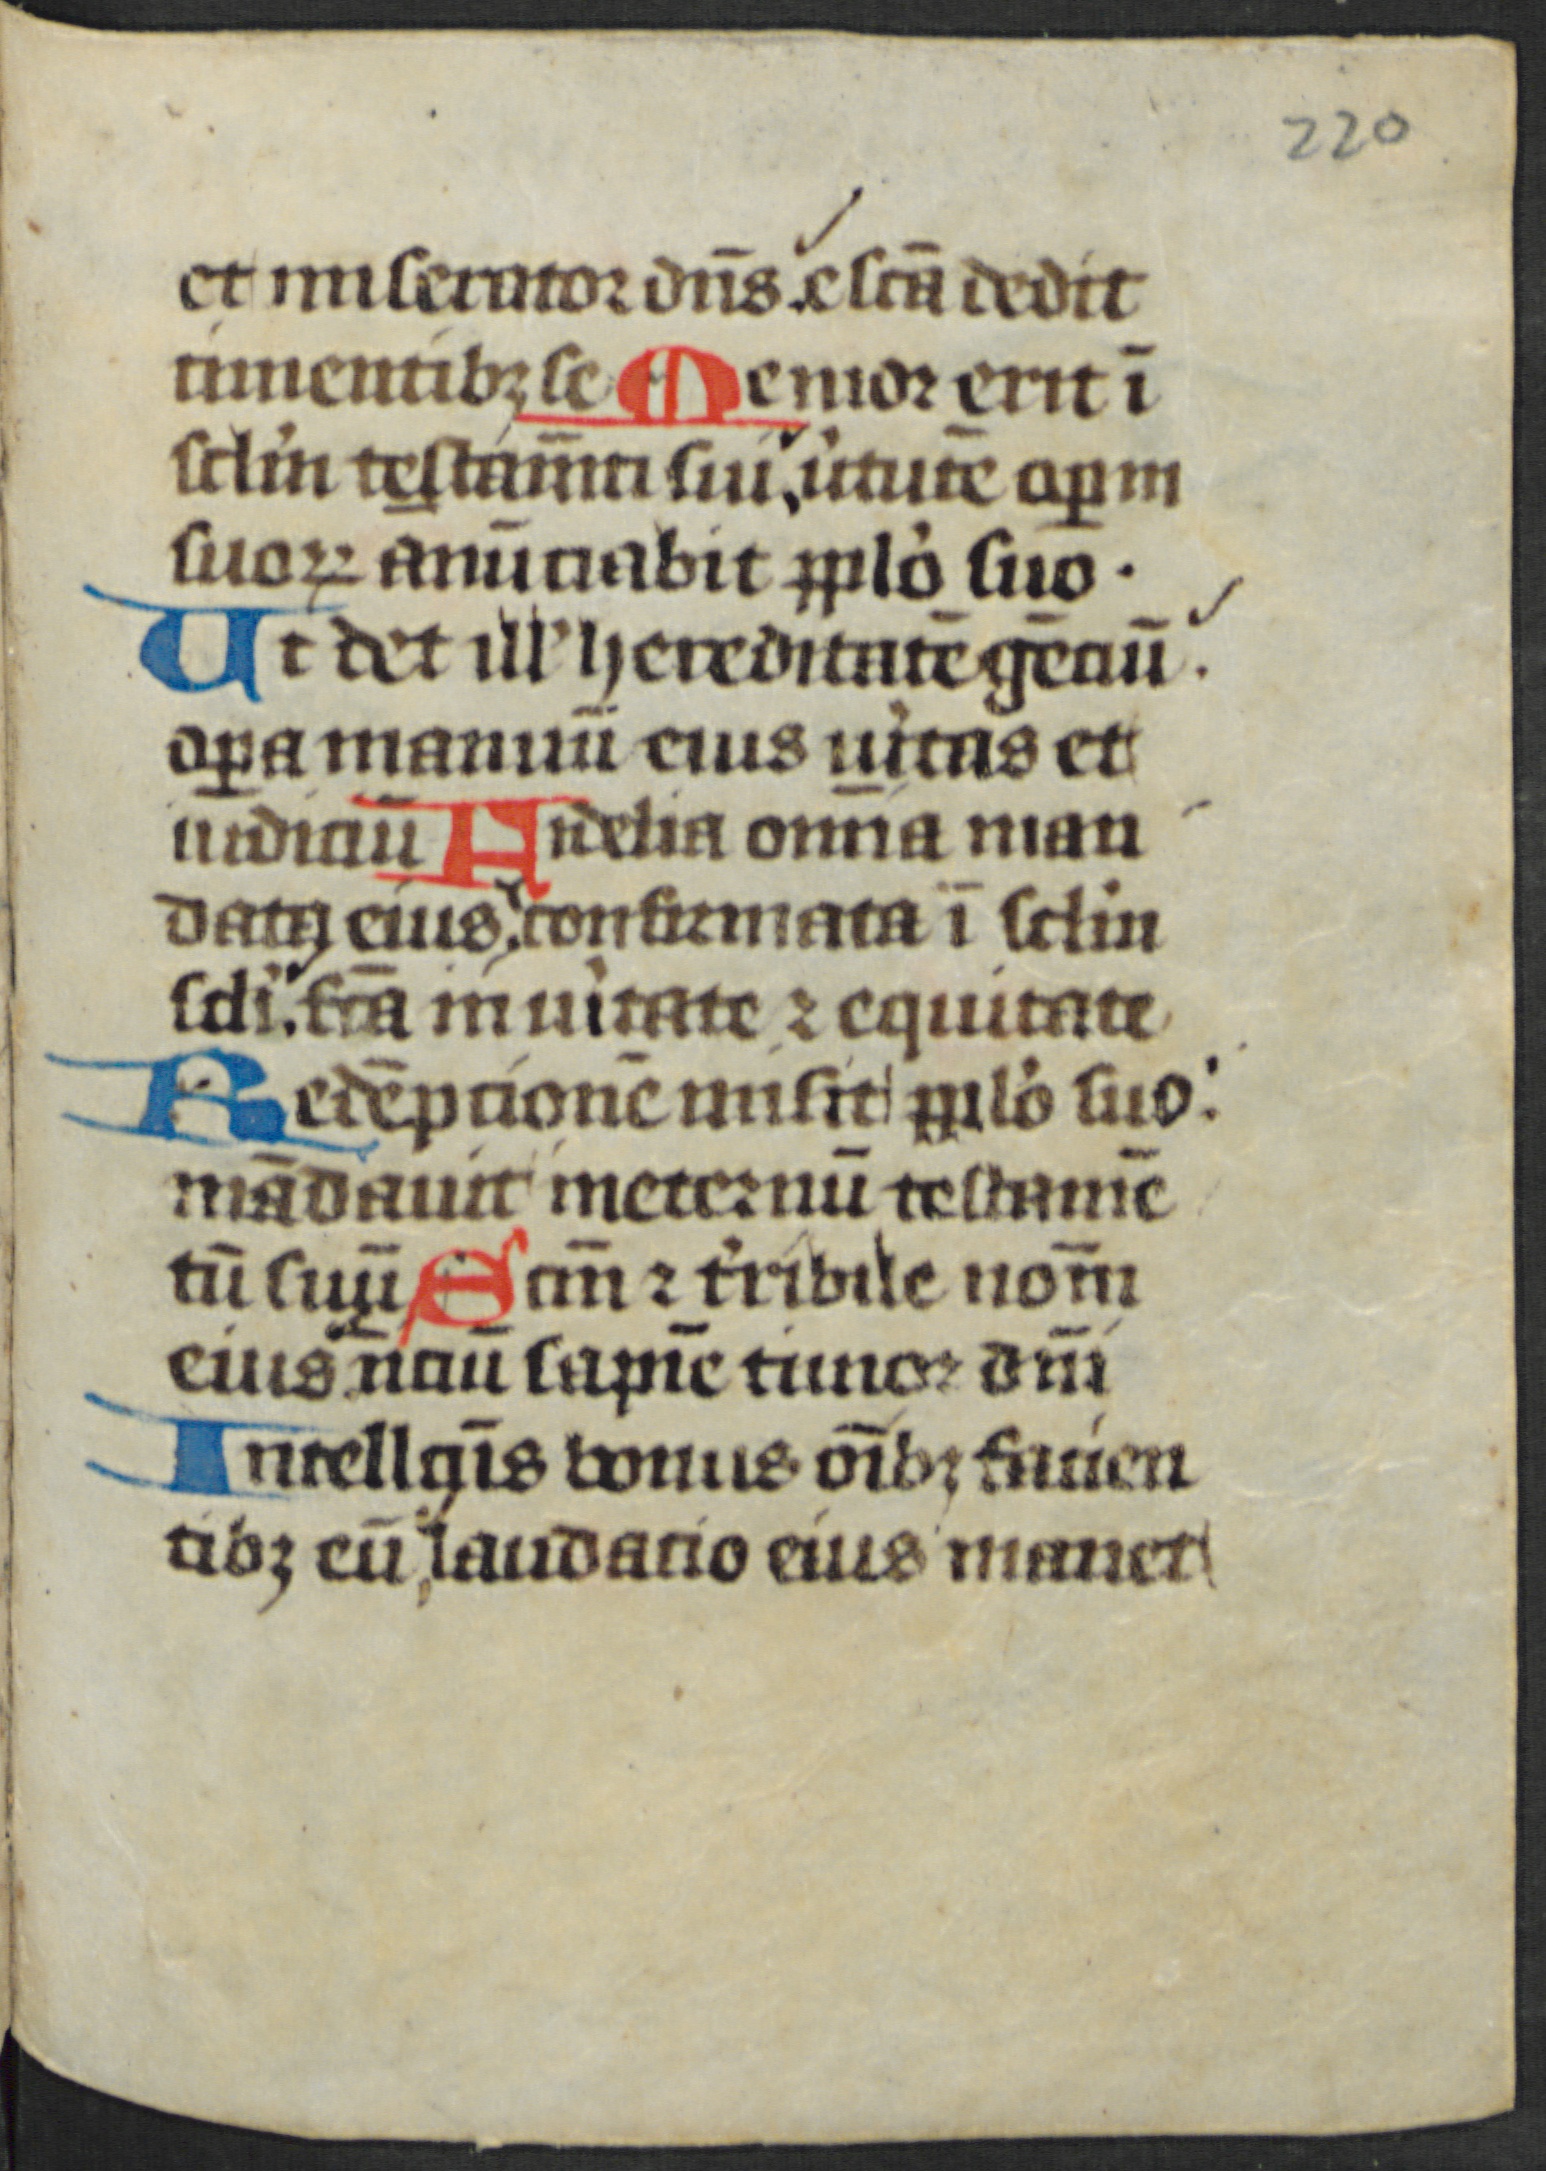 220
et miserator dn̄s. escā dedit
timentibꝫ se Memor erit ī
sclm̄ testam̄ti sui, ūtutē oꝑm
suoꝝ anūciabit ppl̓o suo.
Ut det ill̓ hereditatē gēciū.
oꝑa manuū eius ūitas et
iudiciū Fidelia om̄ia man
data eius, confirmata ī sclm̄
scl̓i. fc̄a in ūitate ⁊ equitate
Redēpcionē misit ppl̓o suo:
mādauit in eternū testamē
tū suū Scm̄ ⁊ t̓ribile nom̄
eius īniciū sapīe timor dn̄i
Intellc̄us bonus oīb⁊ facien
tibꝫ eū, laudacio eius manet